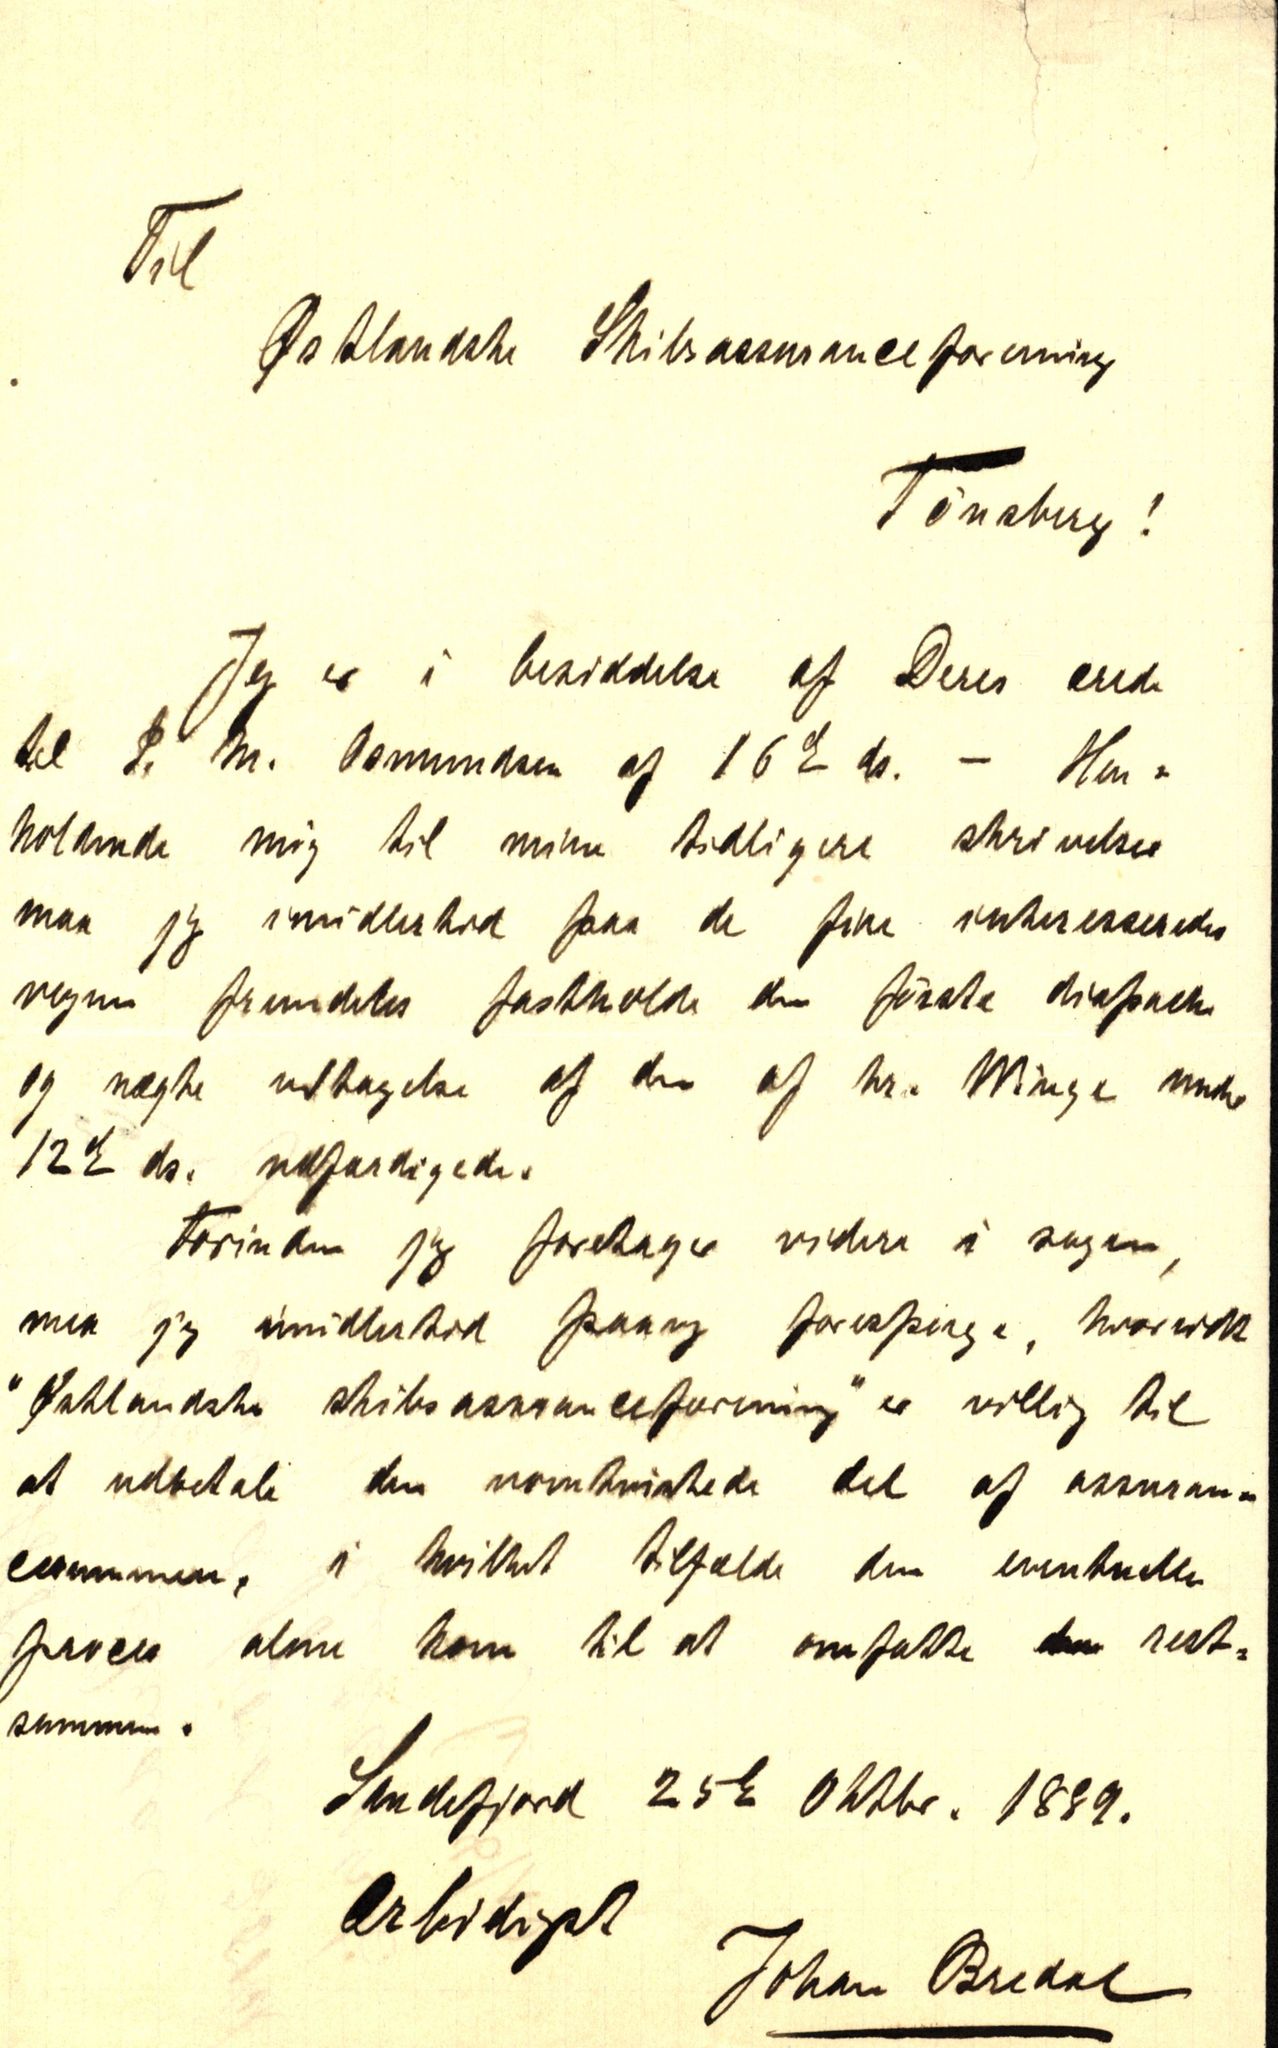 Til
Østlandske Skibsassuranceforening
Tönsberg!
Jeg er i besiddelse af Deres ærede
til P. M. Osmundsen af 16de ds. – Hen-
holdende mig til mine tidligere skrivelser
maa jeg imidlertid paa de fire interesseredes
vegne fremdeles fastholde den förste dispache
og nægte udtagelse af den af hr. Winge under
12te ds. udfærdigede.
Forinden jeg foretager videre i sagen,
maa jeg imidlertid paany forespørge, hvorvidt
"Østlandske skibsassuranceforening" er villig til
at udbetale den uomtvistede del af assuran-
cesummen, i hvilket tilfælde den eventuelle
proces alene kom til at omfatte rest-
summen.
Sandefjord 25de Oktbr. 1889.
Ærbødigst
Johan Bredal